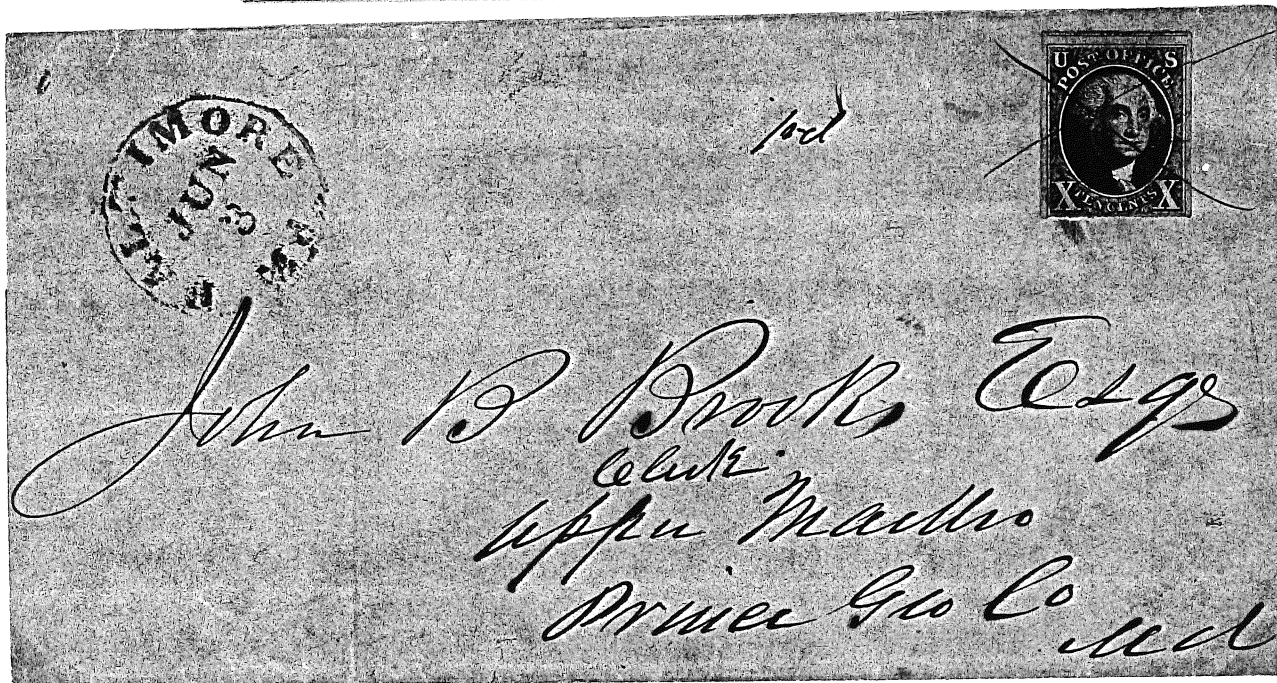 BALTIMORE Md
JUN
3
U S
POST OFFICE
X TEN CENTS X
John B Brooke Esqr
Clerk
Upper Marlbro
Prince Geo Co
Md